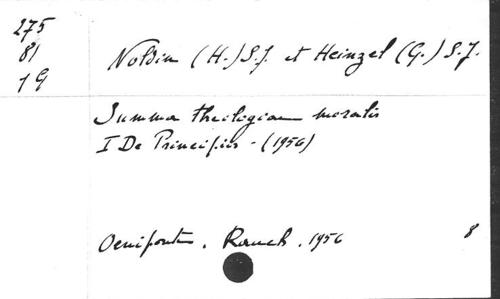 275
81
19
Noldin (H.) S.J. et Heinzel (G.) S.J.
Summa theologiae moralis
I De Principiis - (1956)
Oeniponte. Rauch. 1956
8